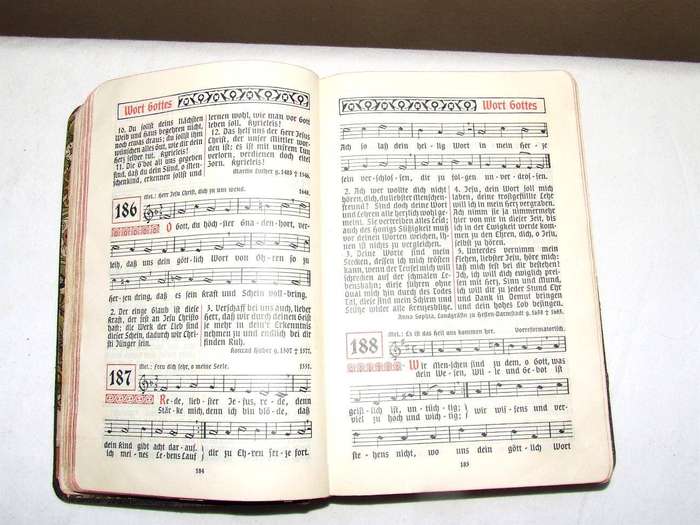 Wort Gottes
10. Du sollst deins Nächsten
Weib und Haus begehren nicht,
noch etwas draus; du sollst ihm
wünschen alles Gut, wie dir dein
Herz selber tut. Kyrieleis!
11. Die G'bot all uns gegeben
sind, daß du dein Sünd, o Men-
schenkind, erkennen sollst und
lernen wohl, wie man vor Gott
leben soll. Kyrieleis!
12. Das helf uns der Herr Jesus
Christ, der unser Mittler wor-
den ist; es ist mit unserm Tun
verlorn, verdienen doch eitel
Zorn. Kyrieleis!
Martin Luther g. 1483 † 1546.
Mel.: Herr Jesu Christ, dich zu uns wend. 1648.
186
O Gott, du höch-ster Gna-den-hort, ver-
leih, daß uns dein göttlich Wort von Oh-ren so zu
Her-zen dring, daß es sein Kraft und Schein voll-bring.
2. Der einge Glaub ist diese
Kraft, der fest an Jesu Christo
hast; die Werk der Lieb sind
dieser Schein, dadurch wir Chri-
sti Jünger sein.
3. Verschaff bei uns auch, lieber
Herr, daß wir durch deinen Geist
je mehr in dein'r Erkenntnis
nehmen zu und endlich bei dir
finden Ruh.
Konrad Huber g. 1507 † 1577.
Mel.: Freu dich sehr, o meine Seele. 1551.
187
Re-de, lieb-ster Je-sus, re-de, denn
Stär-ke mich, denn ich bin blö-de, daß
dein Kind gibt acht dar-auf.
ich mei-nes Le-bens Lauf
dir zu Eh-ren set-ze fort.
184
Wort Gottes
Ach so laß dein hei-lig Wort in mein Her-ze
sein ver-schlos-sen, dir zu fol-gen un-ver-dros-sen.
2. Ach wer wollte dich nicht
hören, dich, du liebster Menschen-
freund? Sind doch deine Wort
und Lehren alle herzlich wohl ge-
meint. Sie vertreiben alles Leid;
auch des Honigs Süßigkeit muß
vor deinen Worten weichen, ih-
nen ist nichts zu vergleichen.
3. Deine Worte sind mein
Stecken, dessen ich mich trösten
kann, wenn der Teufel mich will
schrecken auf der schmalen Le-
bensbahn; diese führen ohne
Qual mich hin durch des Todes
Tal, diese sind mein Schirm und
Stütze wider alle Kreuzeshitze.
4. Jesu, dein Wort soll mich
laben, deine trosterfüllte Lehre
will ich in mein Herz vergraben.
Ach nimm sie ja nimmermehr
hier von mir in dieser Zeit, bis
ich in der Ewigkeit werde kom-
men zu den Ehren, dich, o Jesu,
selbst zu hören.
5. Unterdes vernimm mein
Flehen, liebster Jesu, höre mich;
laß mich fest bei dir bestehen!
So will ich dich ewiglich preisen
mit Herz, Sinn und Mund,
ich will dir zu jeder Stund Ehr
und Dank in Demut bringen
und dein hohes Lob besingen.
Anna Sophia, Landgräfin zu Hessen-Darmstadt g. 1638 † 1683.
Mel.: Es ist das Heil uns kommen her. Vorreformatorisch.
188
Wir Men-schen sind zu dem, o Gott, was
dein We-sen, Wil-le und Ge-bot ist
geist-lich ist, un-tüch-tig;
viel zu hoch und wich-tig;
wir wis-sens und ver-
ste-hens nicht, wo uns dein gött-lich Wort
185